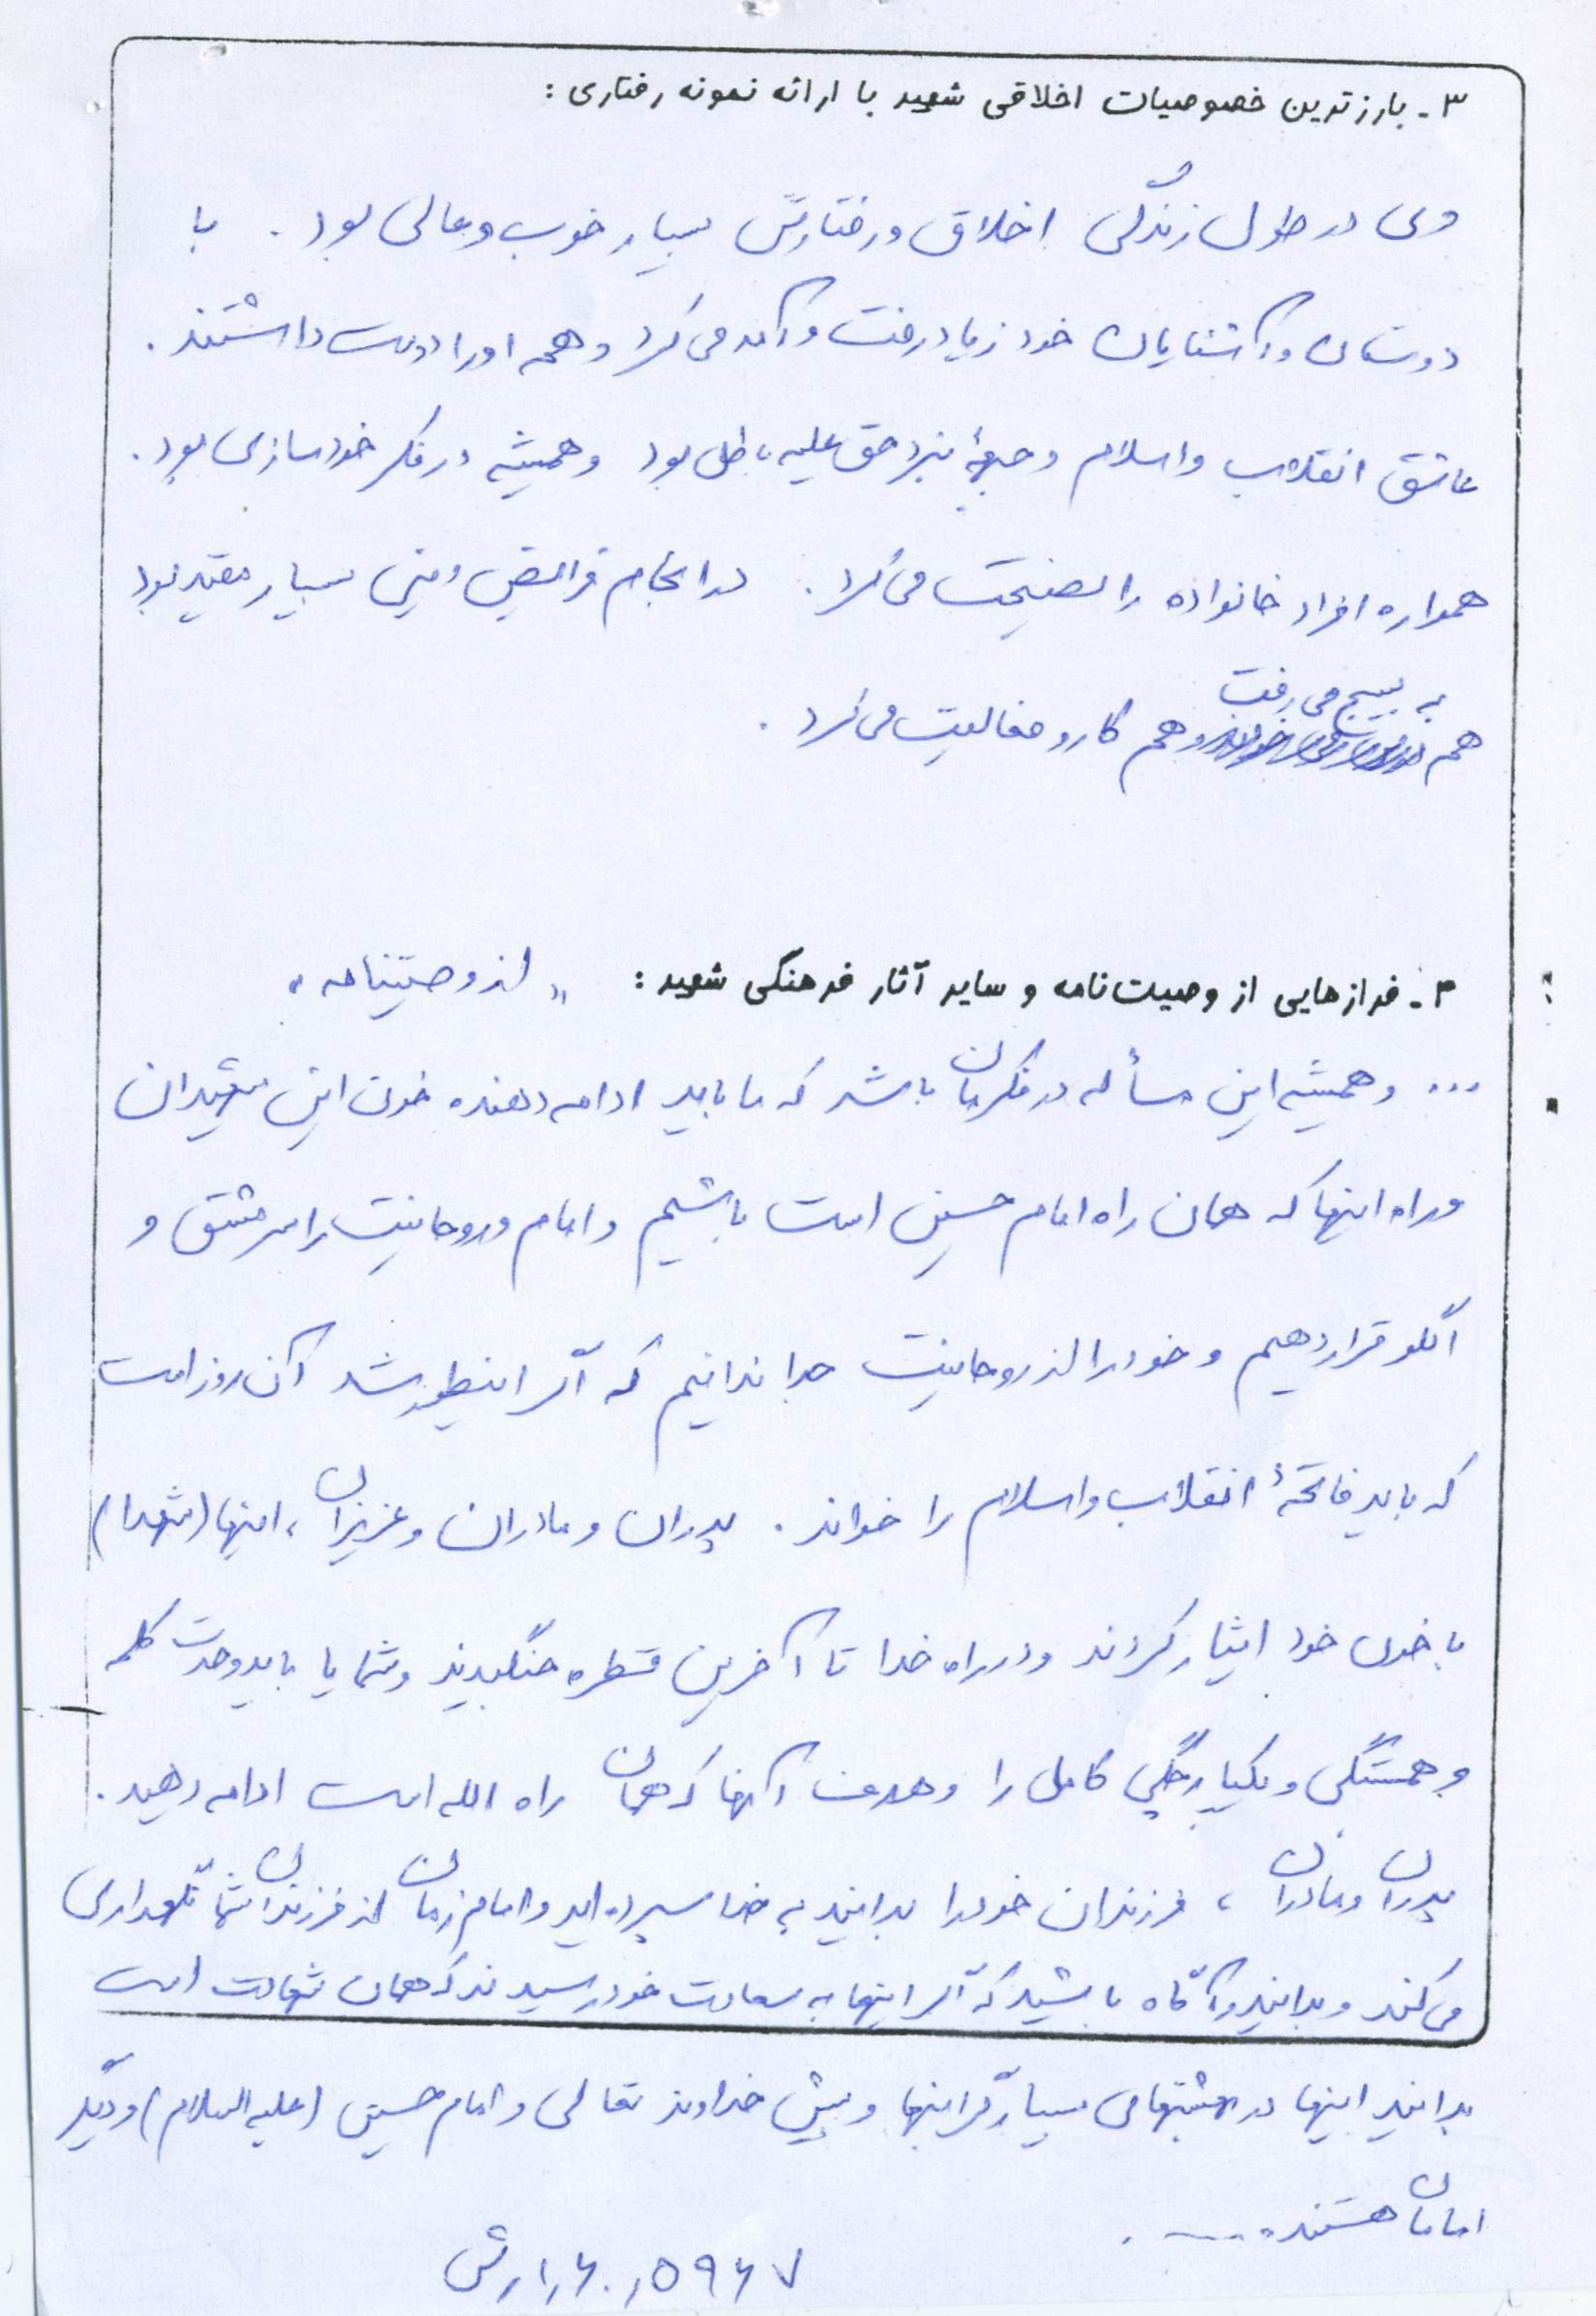 ۳ - بارزترین خصوصیات اخلاقی شهید با ارائه نمونه رفتاری :
وی در طول زندگی اخلاق و رفتارش بسیار خوب و عالی بود . با
دوستان و آشنایان خود زیاد رفت و آمد می کرد و همه او را دوست داشتند .
عاشق انقلاب و اسلام و جبههٔ نبرد حق علیه باطل بود و همیشه در فکر خودسازی بود .
همواره افراد خانواده را نصیحت می کرد . در انجام فرائض دینی بسیار مقید بود
به بسیج می رفت
هم و هم کار و فعالیت می کرد .
۴ - فرازهایی از وصیت نامه و سایر آثار فرهنگی شهید : " از وصیتنامه "
... و همیشه این مسأله در فکرمان باشد که ما باید ادامه دهنده خون این شهیدان
و راه اینها که همان راه امام حسین است باشیم و امام و روحانیت را سرمشق و
الگو قرار دهیم و خود را از روحانیت جدا ندانیم که اگر اینطور شد آن روز است
که باید فاتحهٔ انقلاب و اسلام را خواند . پدران و مادران و عزیزان ، اینها (شهدا)
با خون خود ایثار کردند و در راه خدا تا آخرین قطره جنگیدند و شما با باید وحدت کلمه
و همبستگی و یکپارچگی کامل را و هدف آنها که همان راه الله است ادامه دهید .
پدران و مادران ، فرزندان خود را بدانید به خدا سپرده اید و امام زمان از فرزندان شما نگهداری
می کند و بدانید و آگاه باشید که اگر اینها به سعادت خود رسیدند که همان شهادت است
بدانید اینها در بهشتهای بسیار گرانبها و پیش خداوند تعالی و امام حسین (علیه السلام) و دیگر
امامان هستند ..... .